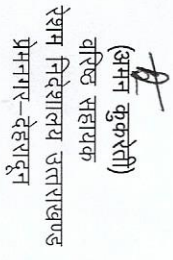 (अमन कुकरेती)
वरिष्ठ सहायक
रेशम निदेशालय उत्तराखण्ड
प्रेमनगर–देहरादून